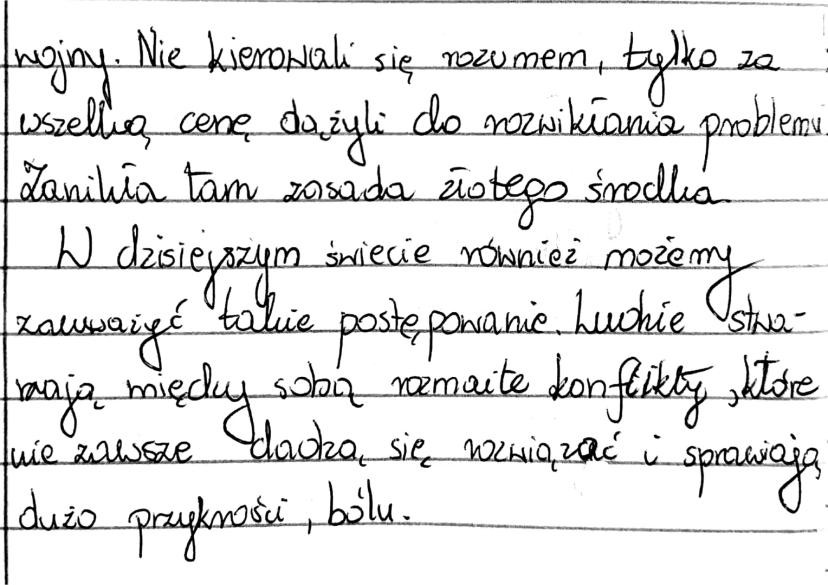 wojny. Nie kierowali się rozumem, tylko za
wszelką cenę dążyli do rozwikłania problemu.
Zanikła tam zasada złotego środka
W dzisiejszym świecie również możemy
zauważyć takie postępowanie. Ludzie stwa-
rzają między sobą rozmaite konflikty, które
nie zawsze dadzą się rozwiązać i sprawiają
dużo przykrości, bólu.